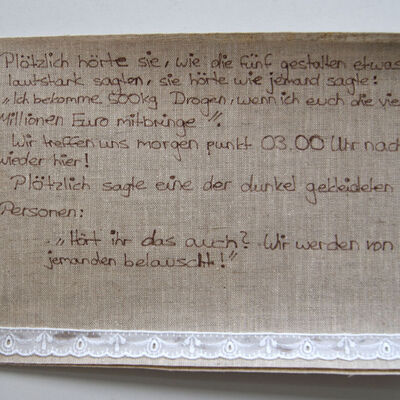 Plötzlich hörte sie, wie die fünf gestalten etwas
lautstark sagten, sie hörte wie jemand sagte:
„Ich bekomme 500kg Drogen, wenn ich euch die vie
Millionen Euro mitbringe".
Wir treffen uns morgen punkt 03.00 Uhr nach
wieder hier!
Plötzlich sagte eine der dunkel gekleideten
Personen:
„Hört ihr das auch? Wir werden von
jemanden belauscht!"